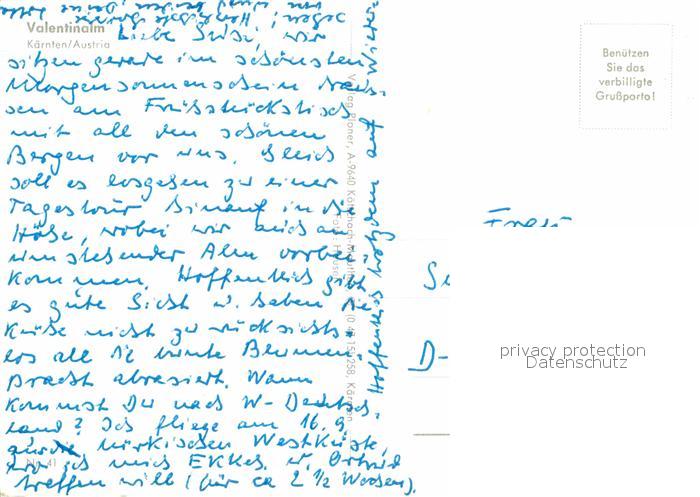 Valentinalm
Kärnten/Austria
Liebe Susi, wir
sitzen gerade im schönsten
Morgensonnenschein draus-
sen am Frühstückstisch
mit all den schönen
Bergen vor uns. Gleich
soll es losgehen zu einer
Tagestour hinauf in die
Höhe, wobei wir auch an
umstehender Alm vorbei-
kommen. Hoffentlich gibt
es gute Sicht u. haben die
Kühe nicht zu rücksichts-
los all die bunte Blumen-
pracht abrasiert. Wann
kommst Du nach W-Deutsch-
land? Ich fliege am 16.9.
zur türkischen Westküste,
wo ich mich u.
treffen will (für ca 2 1/2 Wochen).
Hoffentlich trotzdem auf Wieder-
Verlag A-9640 Kötschach-Mauthen
Benützen
Sie das
verbilligte
Grußporto!
Frau
D-
privacy protection
Datenschutz